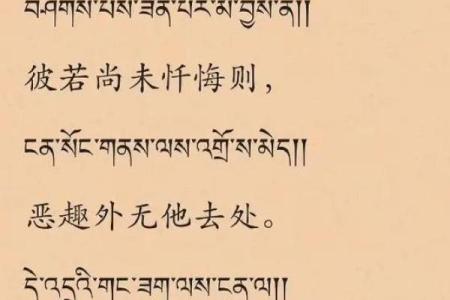 བཤགས་པས་ཟིན་པར་མ་བྱས་ན།།
彼若尚未忏悔则，
ངན་སོང་གནས་ལས་འགྲོ་ས་མེད།།
恶趣外无他去处。
དེ་འདྲའི་གང་ཟག་ལས་ངན་ལ།།